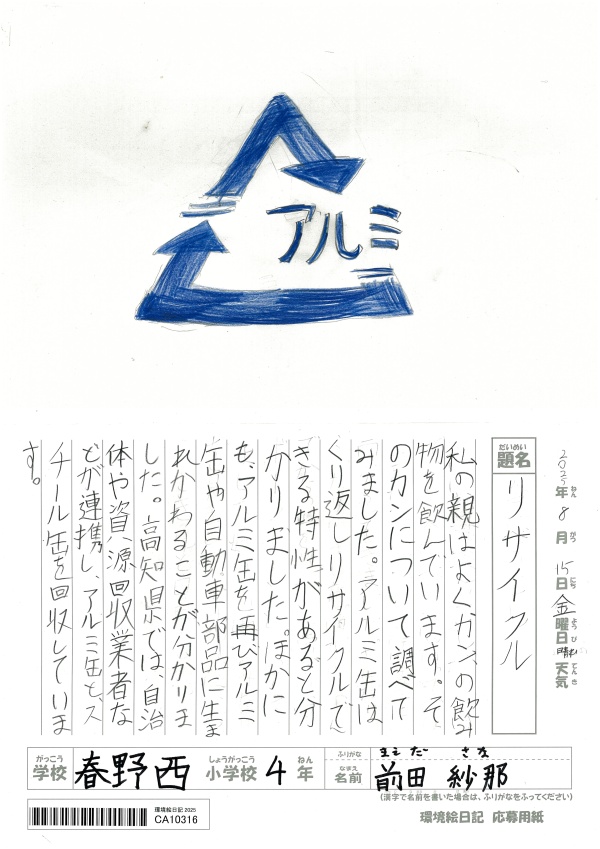 アルミ
2025年8月15日金曜日晴れ天気
ねん
がつ
にち
ようび
てんき
だいめい
題名
リサイクル
私の親はよくカンの飲み
物を飲んでいます。そ
のカンについて調べて
みました。アルミ缶は
くり返しリサイクルで
きる特性があると分
かりました。ほかに
も、アルミ缶を再びアルミ
缶や自動車部品に生ま
れかわることが分かりま
した。高知県では、自治
体や資源回収業者な
どが連携し、アルミ缶とス
チール缶を回収していま
す。
がっこう
学校
春野西
しょうがっこう
小学校
4
ねん
年
ふりがな
まえだ さな
なまえ
名前
前田 紗那
(漢字で名前を書いた場合は、ふりがなをふってください)
環境絵日記 2025
CA10316
環境絵日記 応募用紙